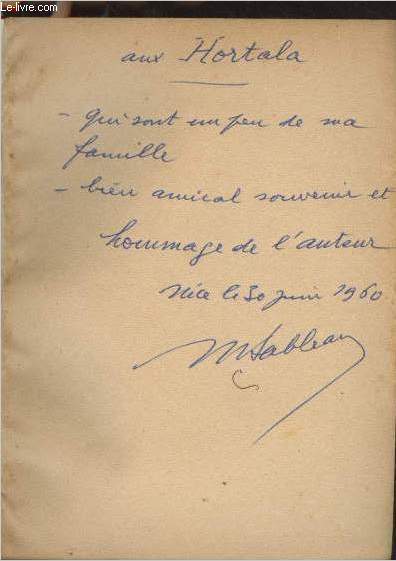 Le-livre.com
aux Hortala
- qui sont un peu de ma
famille
- bien amical souvenir et
hommage de l'auteur
Nice le 30 juin 1960